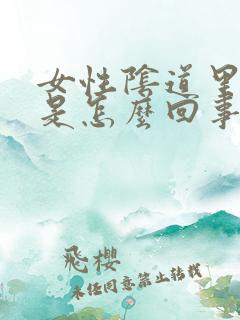 女性陰道里
是怎麼回事
飛櫻
未经同意禁止转载